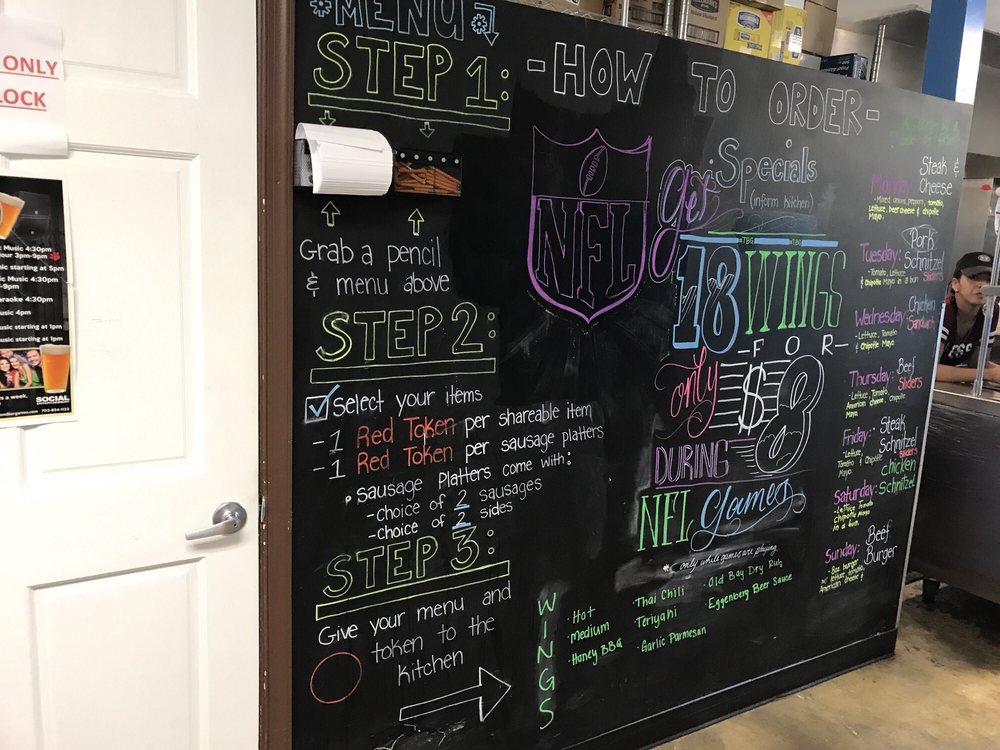 ONLY
LOCK
Music 4:30pm
our 3pm-9pm
sic starting at 5pm
Music 4:30pm
-9pm
araoke 4:30pm
usic 4pm
usic starting at 1pm
SOCIAL
MENU
STEP 1:
Grab a pencil
& menu above
STEP 2:
Select your items
-1 Red Token per shareable item
-1 Red Token per sausage platters
• Sausage Platters come with:
-choice of 2 sausages
-choice of 2 sides
STEP 3:
Give your menu and
token to the
kitchen
-HOW TO ORDER-
NFL
Specials
(inform kitchen)
get
18 WINGS
-FOR-
only $8
DURING
NFL games
* only while games are playing
WINGS
• Hot
Medium
• Honey BBQ
• Thai Chili
• Teriyaki
• Garlic Parmesan
• Old Bay Dry Rub
• Eggenberg Beer Sauce
Monday: Steak &
Cheese
-Mixed onions, peppers, tomato,
lettuce, beer cheese & chipotle
Mayo.
Tuesday: Pork
Schnitzel
Sliders
-Tomato, Lettuce
& Chipotle Mayo in a bun
Wednesday: Chicken
Sandwich
-Lettuce, Tomato
& Chipotle Mayo
Thursday: Beef
Sliders
-Lettuce, Tomato,
American cheese, chipotle
Mayo
Friday: Steak
Schnitzel
Sliders
-Lettuce,
Tomato & Chipotle
Mayo
Saturday: chicken
Schnitzel
-Lettuce Tomato
Chipotle Mayo
in a bun.
Sunday: Beef
Burger
-8oz burger
w/ lettuce, tomato,
American cheese &